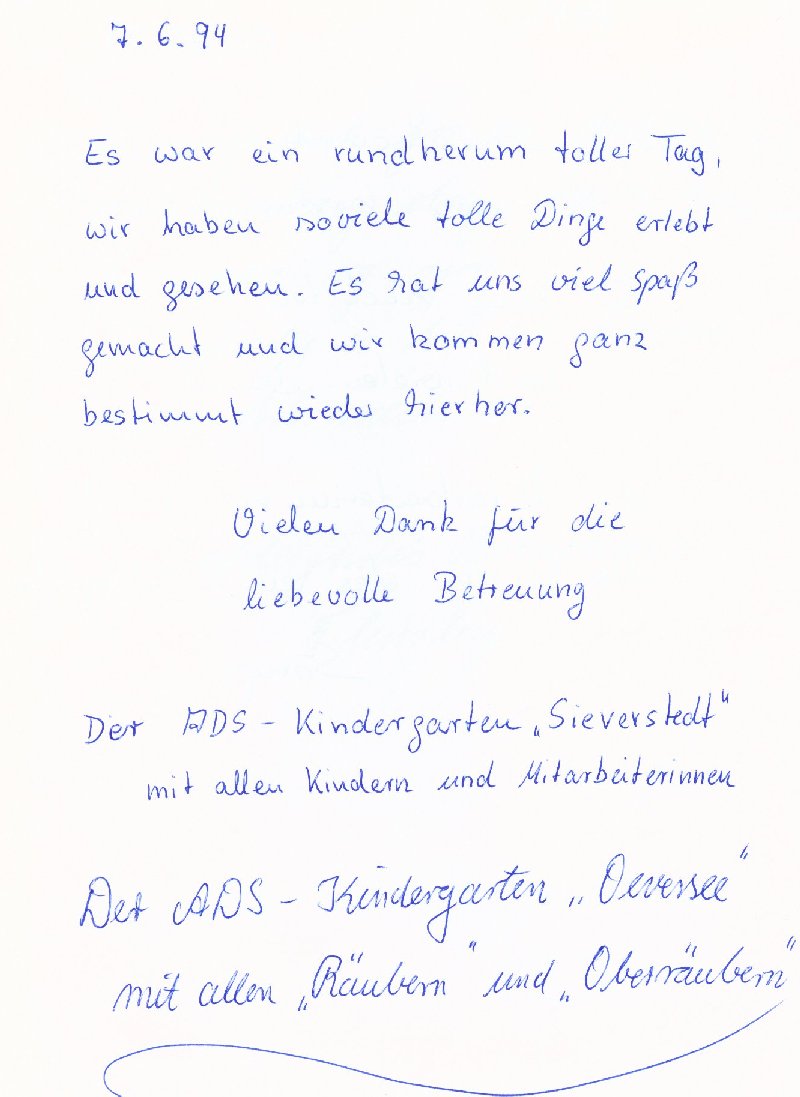 7. 6. 94
Es war ein rundherum toller Tag,
wir haben soviele tolle Dinge erlebt
und gesehen. Es hat uns viel spaß
gemacht und wir kommen ganz
bestimmt wieder hierher.
Vielen Dank für die
liebevolle Betreuung
Der ADS - Kindergarten „Sieverstedt"
mit allen Kindern und Mitarbeiterinnen
Der ADS - Kindergarten „Oeversee"
mit allen „Räubern" und „Oberräubern"